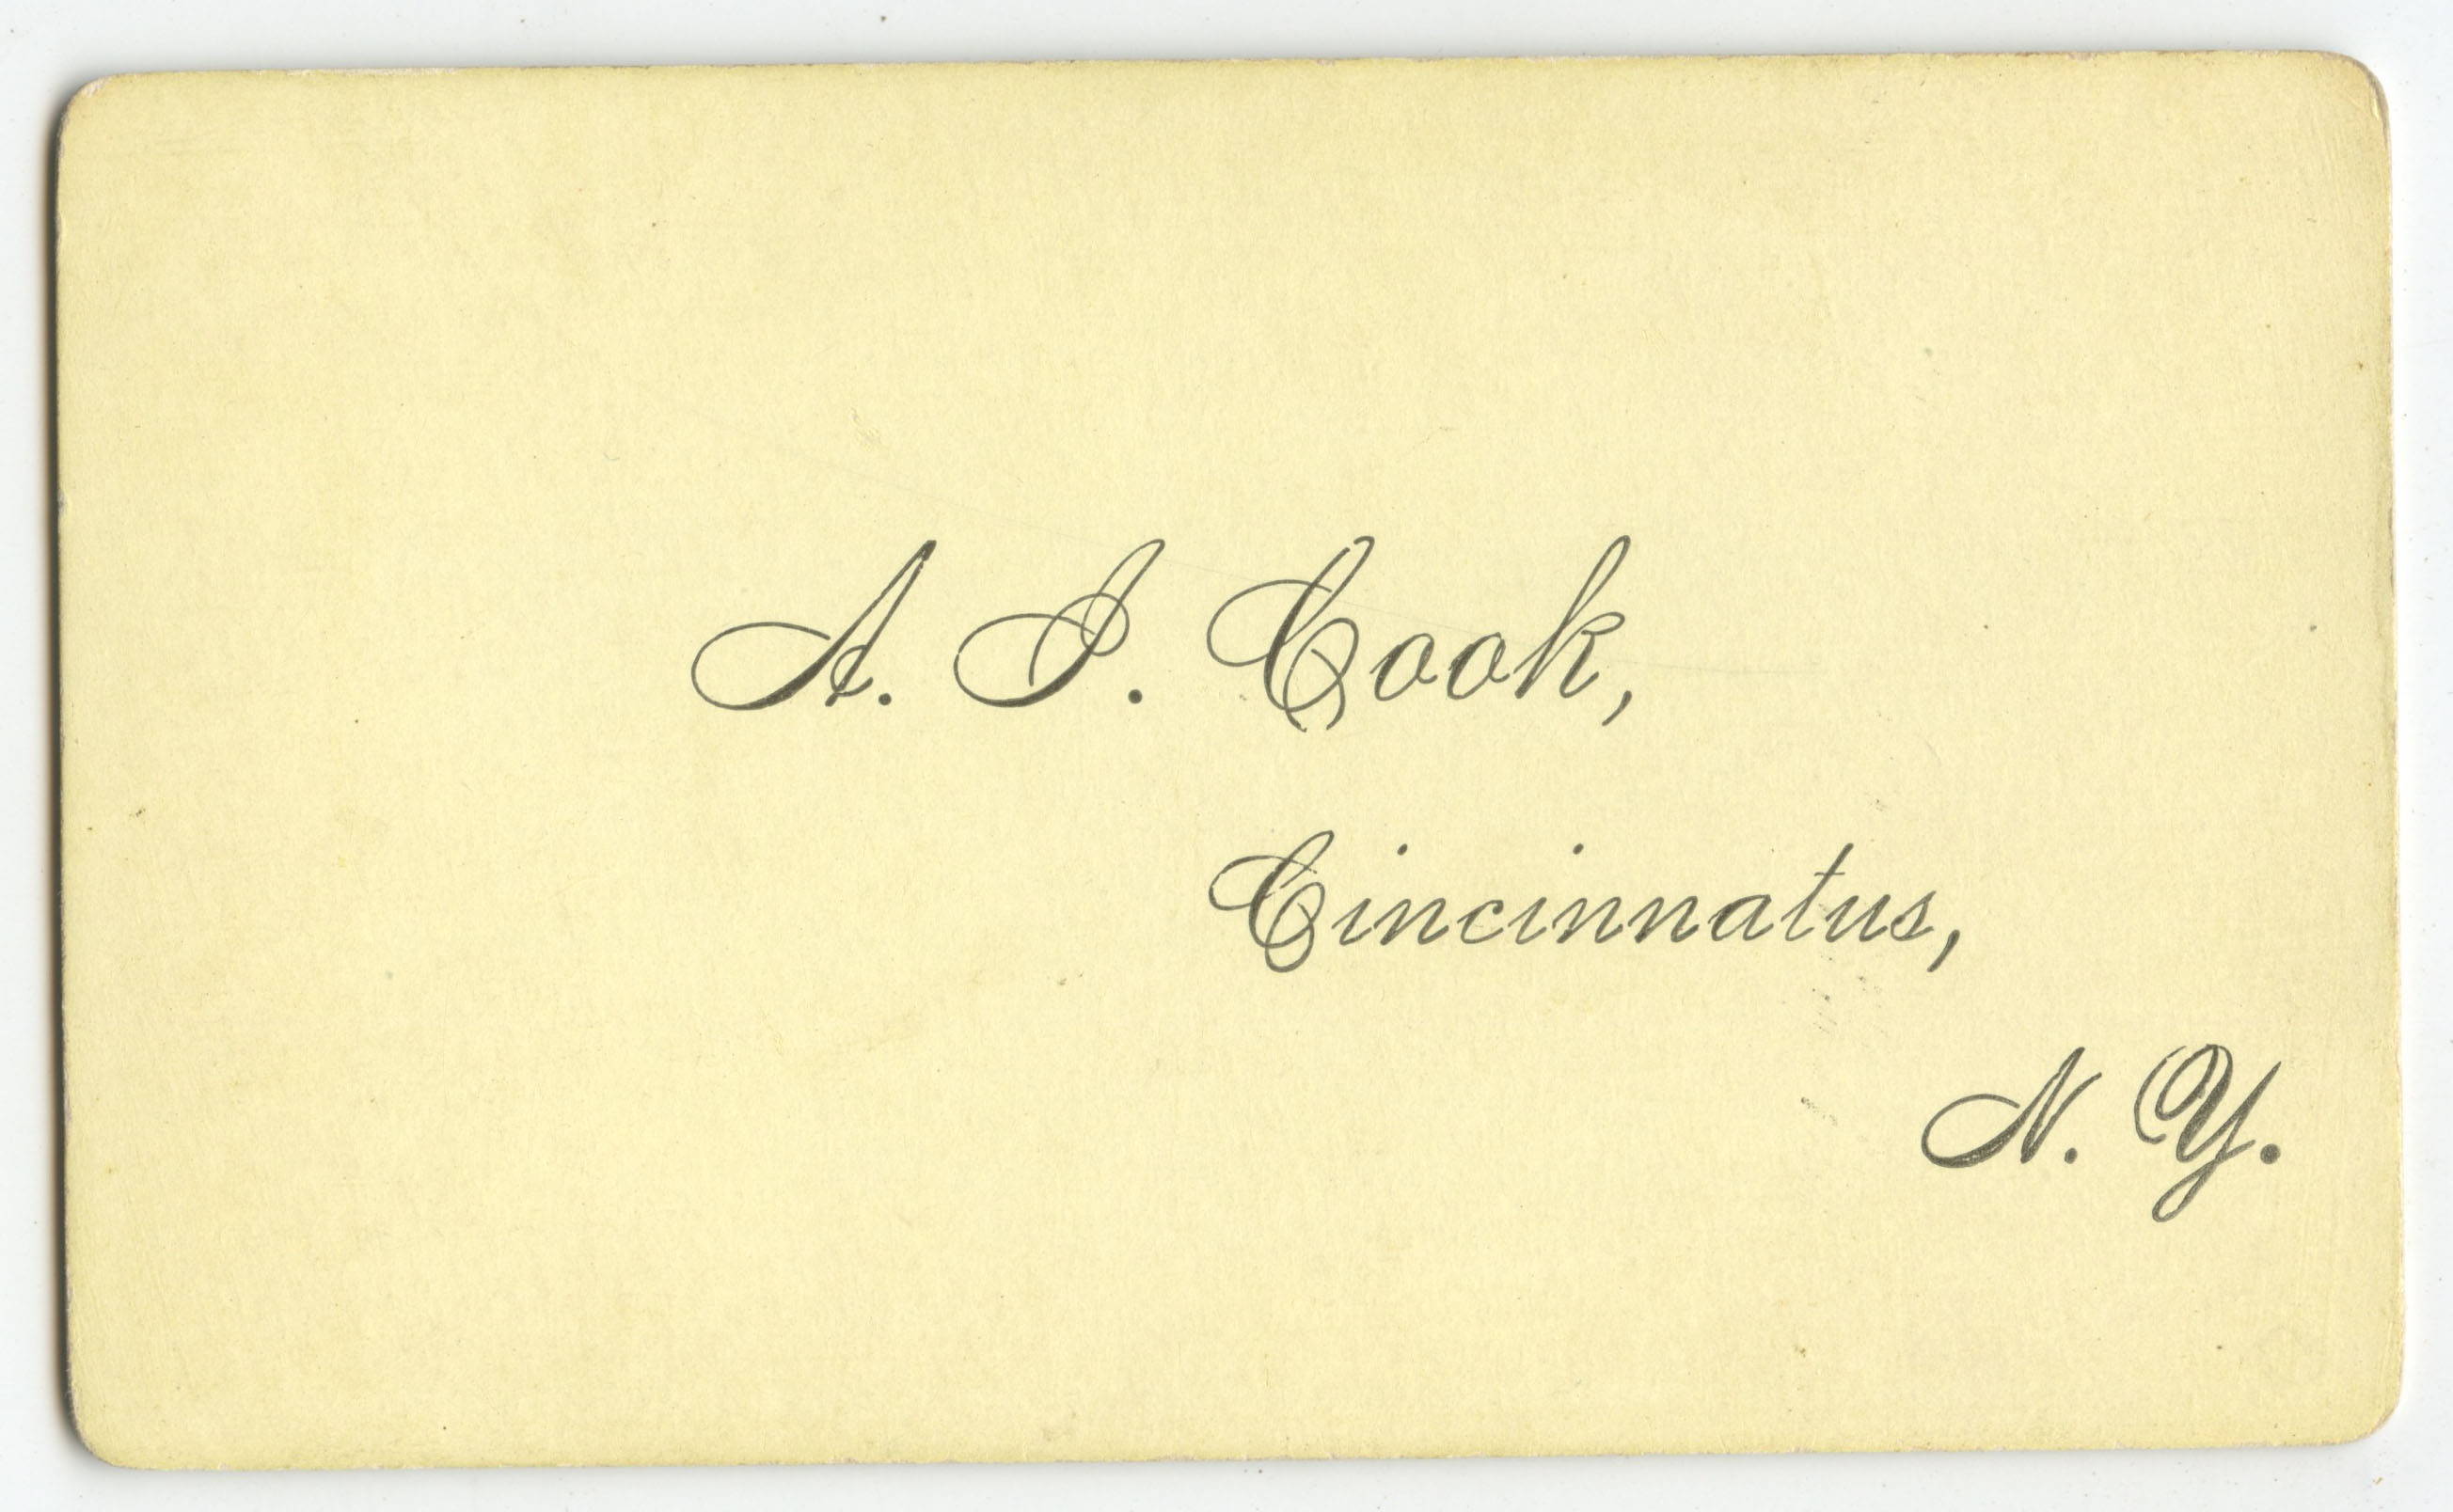 A. I. Cook,
Cincinnatus,
N. Y.